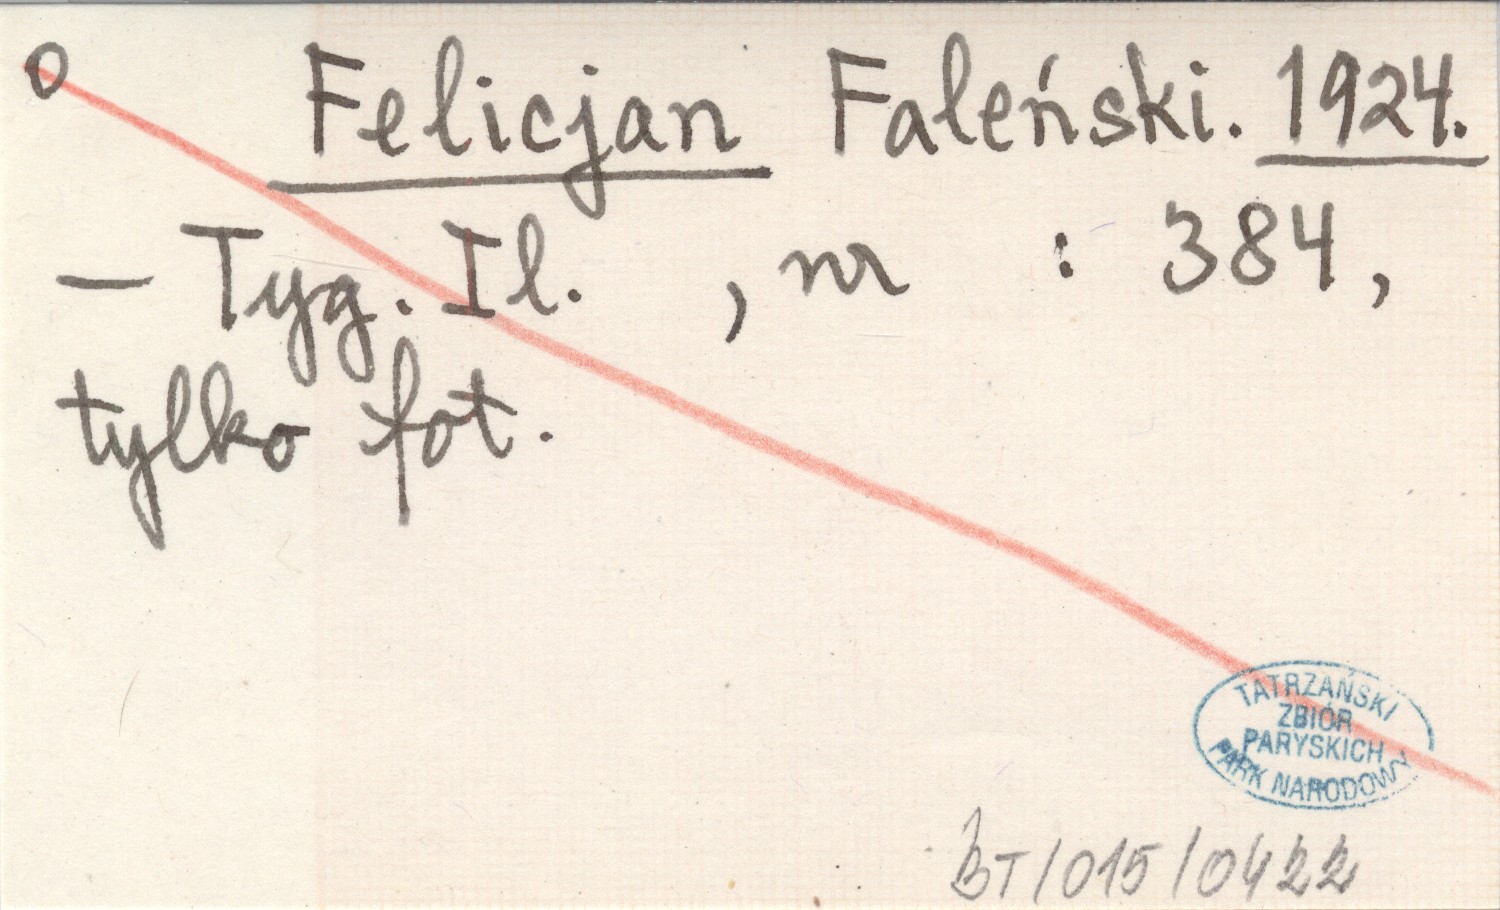 O Felicjan Faleński. 1924.
— Tyg. Il. , nr : 384,
tylko fot.
TATRZAŃSKI
ZBIÓR
PARYSKICH
PARK NARODOWY
BT/015/0422